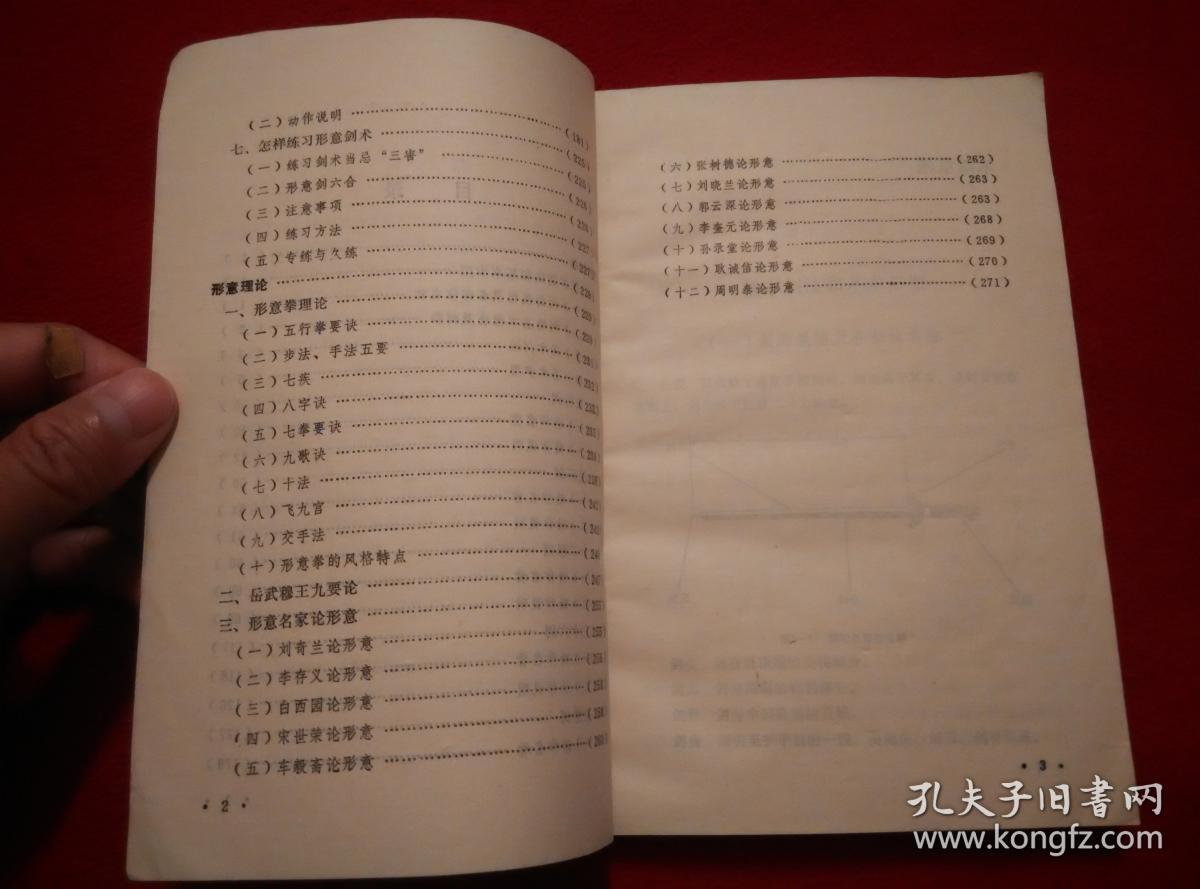 （二）动作说明 ……………………………（181）
七、怎样练习形意剑术 ……………………………（225）
（一）练习剑术当忌“三害” ……………………………（225）
（二）形意剑六合 ……………………………（226）
（三）注意事项 ……………………………（226）
（四）练习方法 ……………………………（227）
（五）专练与久练 ……………………………（227）
形意理论 ……………………………（228）
一、形意拳理论 ……………………………（229）
（一）五行拳要诀 ……………………………（229）
（二）步法、手法五要 ……………………………（231）
（三）七疾 ……………………………（232）
（四）八字诀 ……………………………（233）
（五）七拳要诀 ……………………………（235）
（六）九歌诀 ……………………………（236）
（七）十法 ……………………………（238）
（八）飞九宫 ……………………………（242）
（九）交手法 ……………………………（243）
（十）形意拳的风格特点 ……………………………（246）
二、岳武穆王九要论 ……………………………（247）
三、形意名家论形意 ……………………………（255）
（一）刘奇兰论形意 ……………………………（255）
（二）李存义论形意 ……………………………（256）
（三）白西园论形意 ……………………………（258）
（四）宋世荣论形意 ……………………………（258）
（五）车毅斋论形意 ……………………………（260）
• 2 •
（六）张树德论形意 ……………………………（262）
（七）刘晓兰论形意 ……………………………（263）
（八）郭云深论形意 ……………………………（263）
（九）李奎元论形意 ……………………………（268）
（十）孙录堂论形意 ……………………………（269）
（十一）耿诚信论形意 ……………………………（270）
（十二）周明泰论形意 ……………………………（271）
• 3 •
孔夫子旧书网
www.kongfz.com